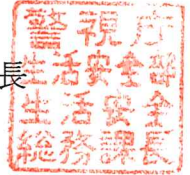 長
警視庁
生活安全部
生活安全
総務課長